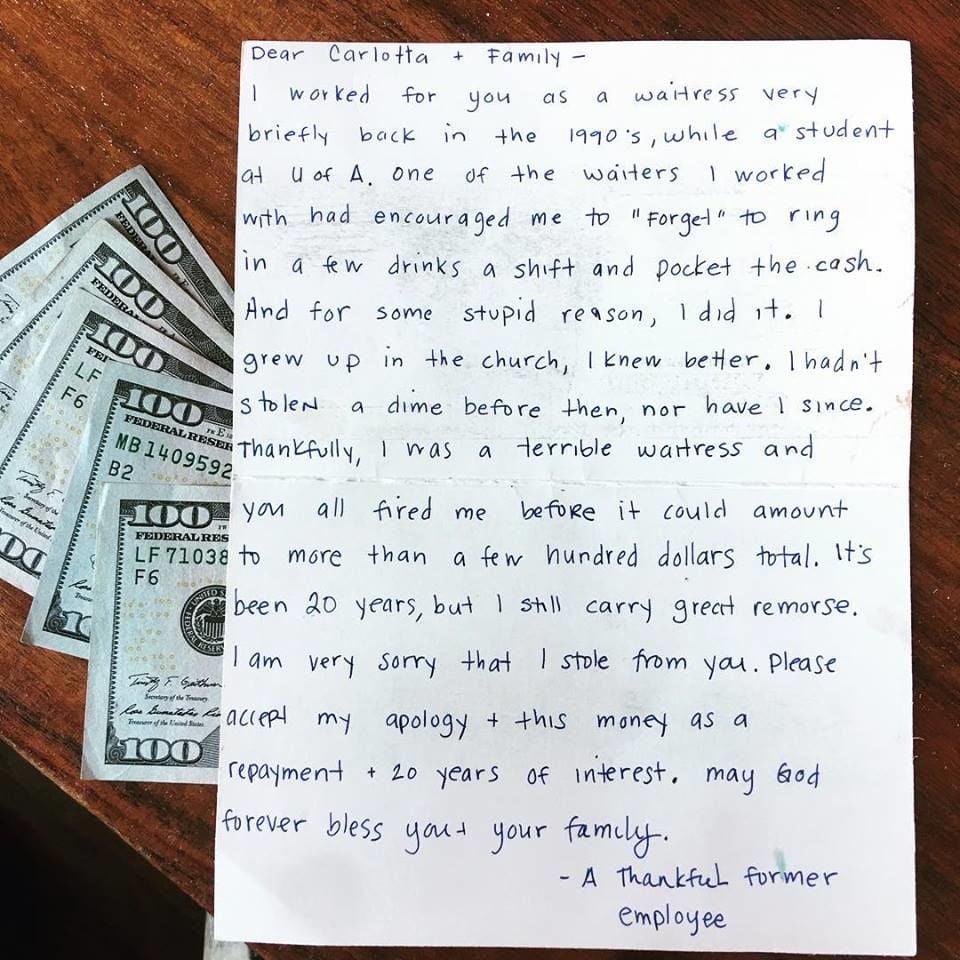 Dear Carlotta + Family -
I worked for you as a waitress very
briefly back in the 1990's, while a student
at U of A. One of the waiters I worked
with had encouraged me to "Forget" to ring
in a few drinks a shift and pocket the cash.
And for some stupid reason, I did it. I
grew up in the church, I knew better. I hadn't
stolen a dime before then, nor have I since.
Thankfully, I was a terrible waitress and
you all fired me before it could amount
to more than a few hundred dollars total. It's
been 20 years, but I still carry great remorse.
I am very sorry that I stole from you. Please
accept my apology + this money as a
repayment + 20 years of interest. May God
forever bless you + your family.
- A Thankful former
employee
100
FEDER
100
FEDERAL
100
FE
LF
F6
100
FEDERAL RESER
MB1409592
B2
100
FEDERAL RES
LF71038
F6
Secretary of the Treasury
Treasurer of the United States
100